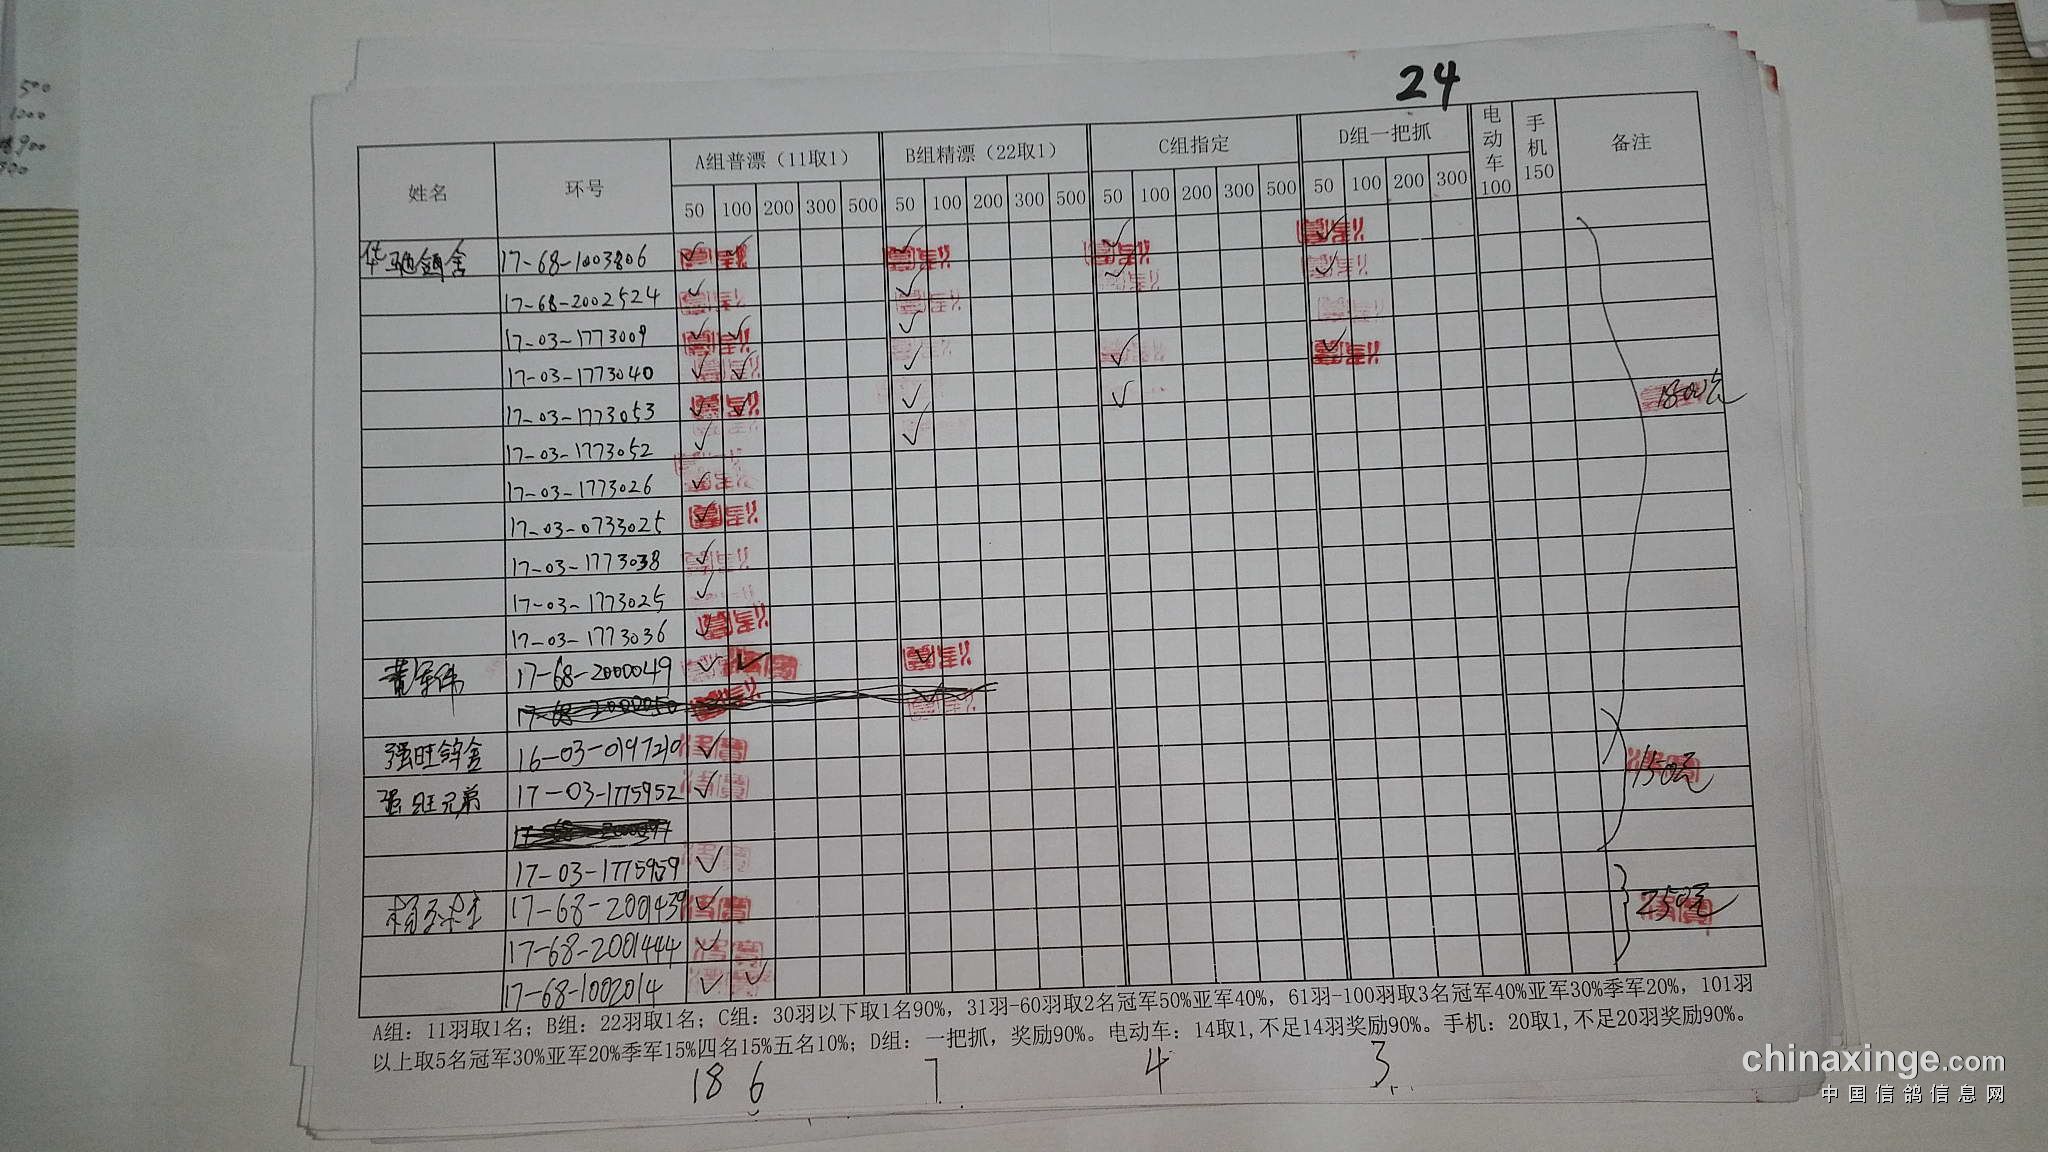 500
1000
900
24
姓名 环号 A组普漂（11取1） B组精漂（22取1） C组指定 D组一把抓 电动车100 手机150 备注
50 100 200 300 500 50 100 200 300 500 50 100 200 300 500 50 100 200 300
华驰鸽舍 17-68-1003806 ✓ ✓ ✓ ✓ ✓
17-68-2002524 ✓ ✓ ✓ ✓
17-03-1773009 ✓ ✓ ✓
17-03-1773040 ✓ ✓ ✓ ✓ ✓
17-03-1773053 ✓ ✓ ✓ ✓ 1800元
17-03-1773052 ✓ ✓
17-03-1773026 ✓
17-03-0733025 ✓
17-03-1773038 ✓
17-03-1773025 ✓
17-03-1773036 ✓
黄军伟 17-68-2000049 ✓ ✓ ✓
17-68-2000050
强旺鸽舍 16-03-0197210 ✓ 150元
强旺兄弟 17-03-1775952 ✓
17-03-1775959 ✓
17-68-2001439 ✓ 250元
17-68-2001444 ✓
17-68-1002014 ✓ ✓
A组：11羽取1名；B组：22羽取1名；C组：30羽以下取1名90%，31羽-60羽取2名冠军50%亚军40%，61羽-100羽取3名冠军40%亚军30%季军20%，101羽
以上取5名冠军30%亚军20%季军15%四名15%五名10%；D组：一把抓，奖励90%。电动车：14取1,不足14羽奖励90%。手机：20取1,不足20羽奖励90%。
18 6 7 4 3
chinaxinge.com
中国信鸽信息网